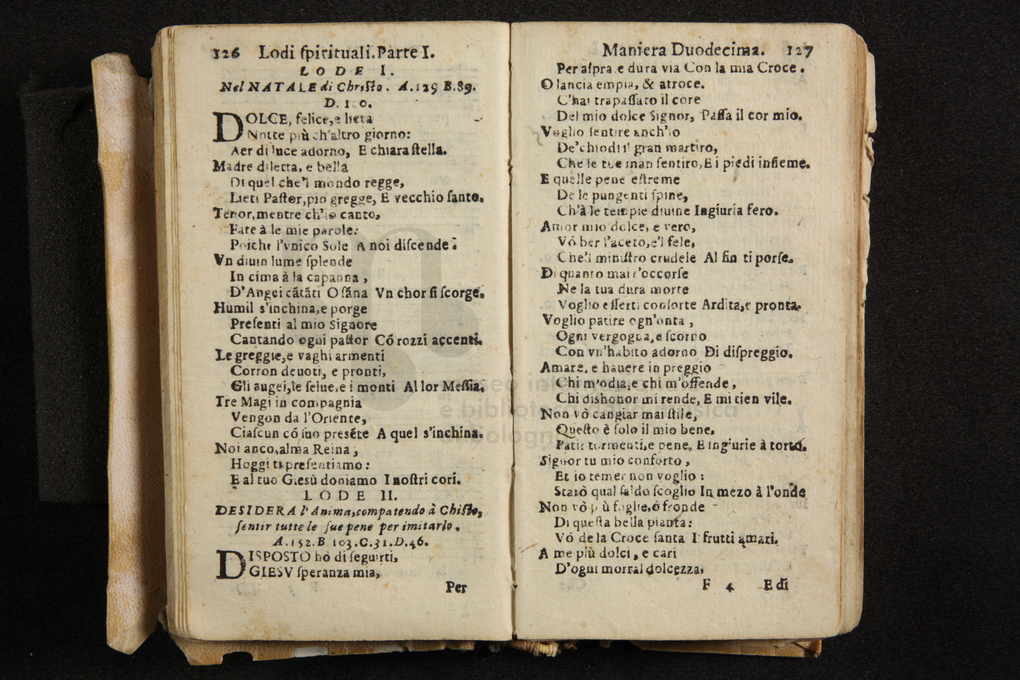 126 Lodi ſpirituali. Parte I.
LODE I.
Nel NATALE di Chriſto. A.129 B.89.
D. 1 0.
DOLCE, felice, e lieta
Notte più ch'altro giorno:
Aer di luce adorno, E chiara ſtella.
Madre diletta, e bella
Di quel che'l mondo regge,
Lieti Paſtor, pio gregge, E vecchio ſanto.
Tenor, mentre ch'io canto,
Fate à le mie parole:
Poiche l'vnico Sole A noi diſcende.
Vn diuin lume ſplende
In cima à la capanna,
D'Angei cãtãti Oſãna Vn chor ſi ſcorge.
Humil s'inchina, e porge
Preſenti al mio Signore
Cantando ogni paſtor Cõ rozzi accenti.
Le greggie, e vaghi armenti
Corron deuoti, e pronti,
Gli augei, le ſelue, e i monti Al lor Meſſia.
Tre Magi in compagnia
Vengon da l'Oriente,
Ciaſcun cõ ſuo preséte A quel s'inchina.
Noi anco, alma Reina,
Hoggi ti preſentiamo:
E al tuo Gieſù doniamo I noſtri cori.
LODE II.
DESIDERA l'Anima, compatendo à Chriſto,
ſentir tutte le ſue pene per imitarlo.
A.152. B 103. C.31. D.46.
DISPOSTO hò di ſeguirti,
GIESV ſperanza mia,
Per
Maniera Duodecima. 127
Per aſpra, e dura via Con la mia Croce.
O lancia empia, & atroce.
C'hai trapaſſato il core
Del mio dolce Signor, Paſſa il cor mio.
Voglio ſentire anch'io
De'chiodi il gran martiro,
Che le tue man ſentiro, E i piedi inſieme.
E quelle pene eſtreme
De le pungenti ſpine,
Ch'à le tempie diuine Ingiuria fero.
Amor mio dolce, e vero,
Vò ber l'aceto, e'l fele,
Che'l miniſtro crudele Al fin ti porſe.
Di quanto mai t'occorſe
Ne la tua dura morte
Voglio eſſerti conſorte Ardita, e pronta.
Voglio patire ogn'onta,
Ogni vergogna, e ſcorno
Con vn'habito adorno Di diſpreggio.
Amare, e hauere in preggio
Chi m'odia, e chi m'offende,
Chi dishonor mi rende, E mi tien vile.
Non vò cangiar mai ſtile,
Queſto è ſolo il mio bene,
Patir tormenti, e pene, E ingiurie à torto.
Signor tu mio conforto,
Et io temer non voglio:
Starò qual ſaldo ſcoglio In mezo à l'onde
Non vò più foglie, ò fronde
Di queſta bella pianta:
Vò de la Croce ſanta I frutti amari.
A me più dolci, e cari
D'ogni mortal dolcezza,
F 4 E di